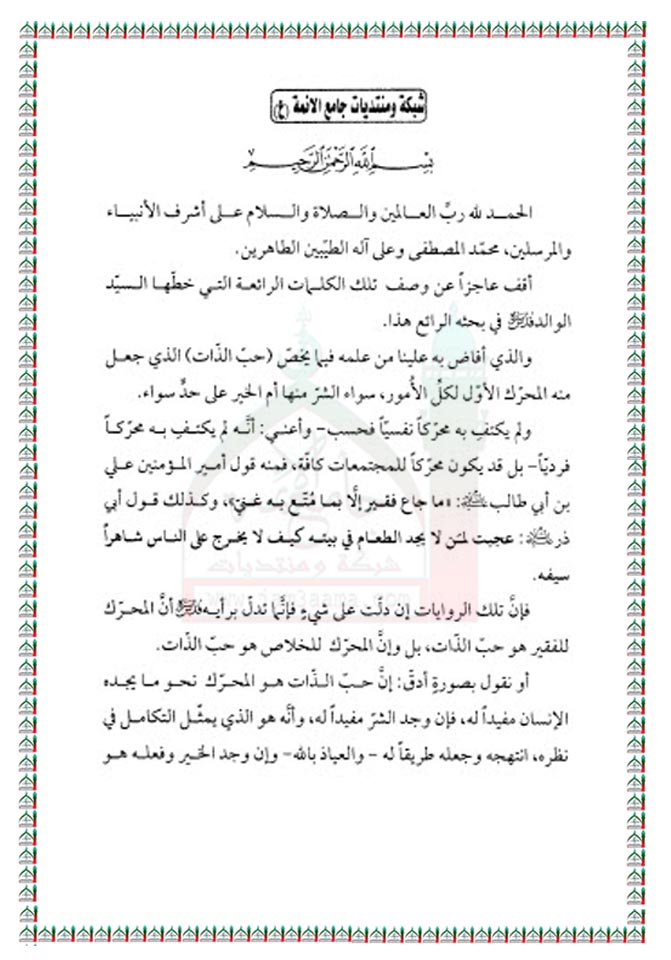 شبكة ومنتديات جامع الائمة (ع)
بسم الله الرحمن الرحيم
الحمد لله ربِّ العالمين والصلاة والسلام على أشرف الأنبياء
والمرسلين، محمّد المصطفى وعلى آله الطيّبين الطاهرين.
أقف عاجزاً عن وصف تلك الكلمات الرائعة التي خطّها السيّد
الوالد في بحثه الرائع هذا.
والذي أفاض به علينا من علمه فيما يخصّ (حبّ الذات) الذي جعل
منه المحرّك الأوّل لكلِّ الأُمور، سواء الشرّ منها أم الخير على حدٍّ سواء.
ولم يكتفِ به محرّكاً نفسيّاً فحسب- وأعني: أنَّه لم يكتفِ به محرّكاً
فرديّاً- بل قد يكون محرّكاً للمجتمعات كافّة، فمنه قول أمير المؤمنين علي
بن أبي طالب: «ما جاع فقير إلّا بما مُتّع به غنيّ»، وكذلك قول أبي
ذر: عجبت لمَن لا يجد الطعام في بيته كيف لا يخرج على الناس شاهراً
سيفه.
فإنَّ تلك الروايات إن دلّت على شيءٍ فإنَّما تدلّ برأيه أنَّ المحرّك
للفقير هو حبّ الذات، بل وإنَّ المحرّك للخلاص هو حبّ الذات.
أو نقول بصورةٍ أدقّ: إنَّ حبّ الذات هو المحرّك نحو ما يجده
الإنسان مفيداً له، فإن وجد الشرّ مفيداً له، وأنَّه هو الذي يمثّل التكامل في
نظره، انتهجه وجعله طريقاً له - والعياذ بالله- وإن وجد الخير وفعله هو
شبكة ومنتديات